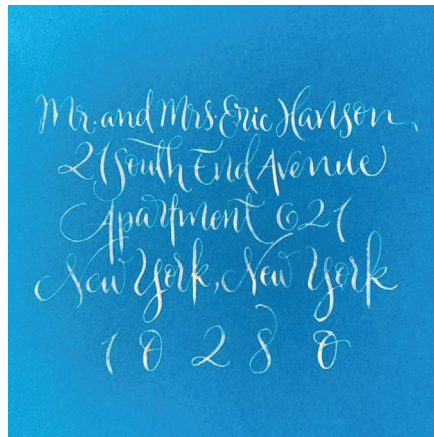 Mr. and Mrs. Eric Hanson
21 South End Avenue
Apartment 621
New York, New York
10280